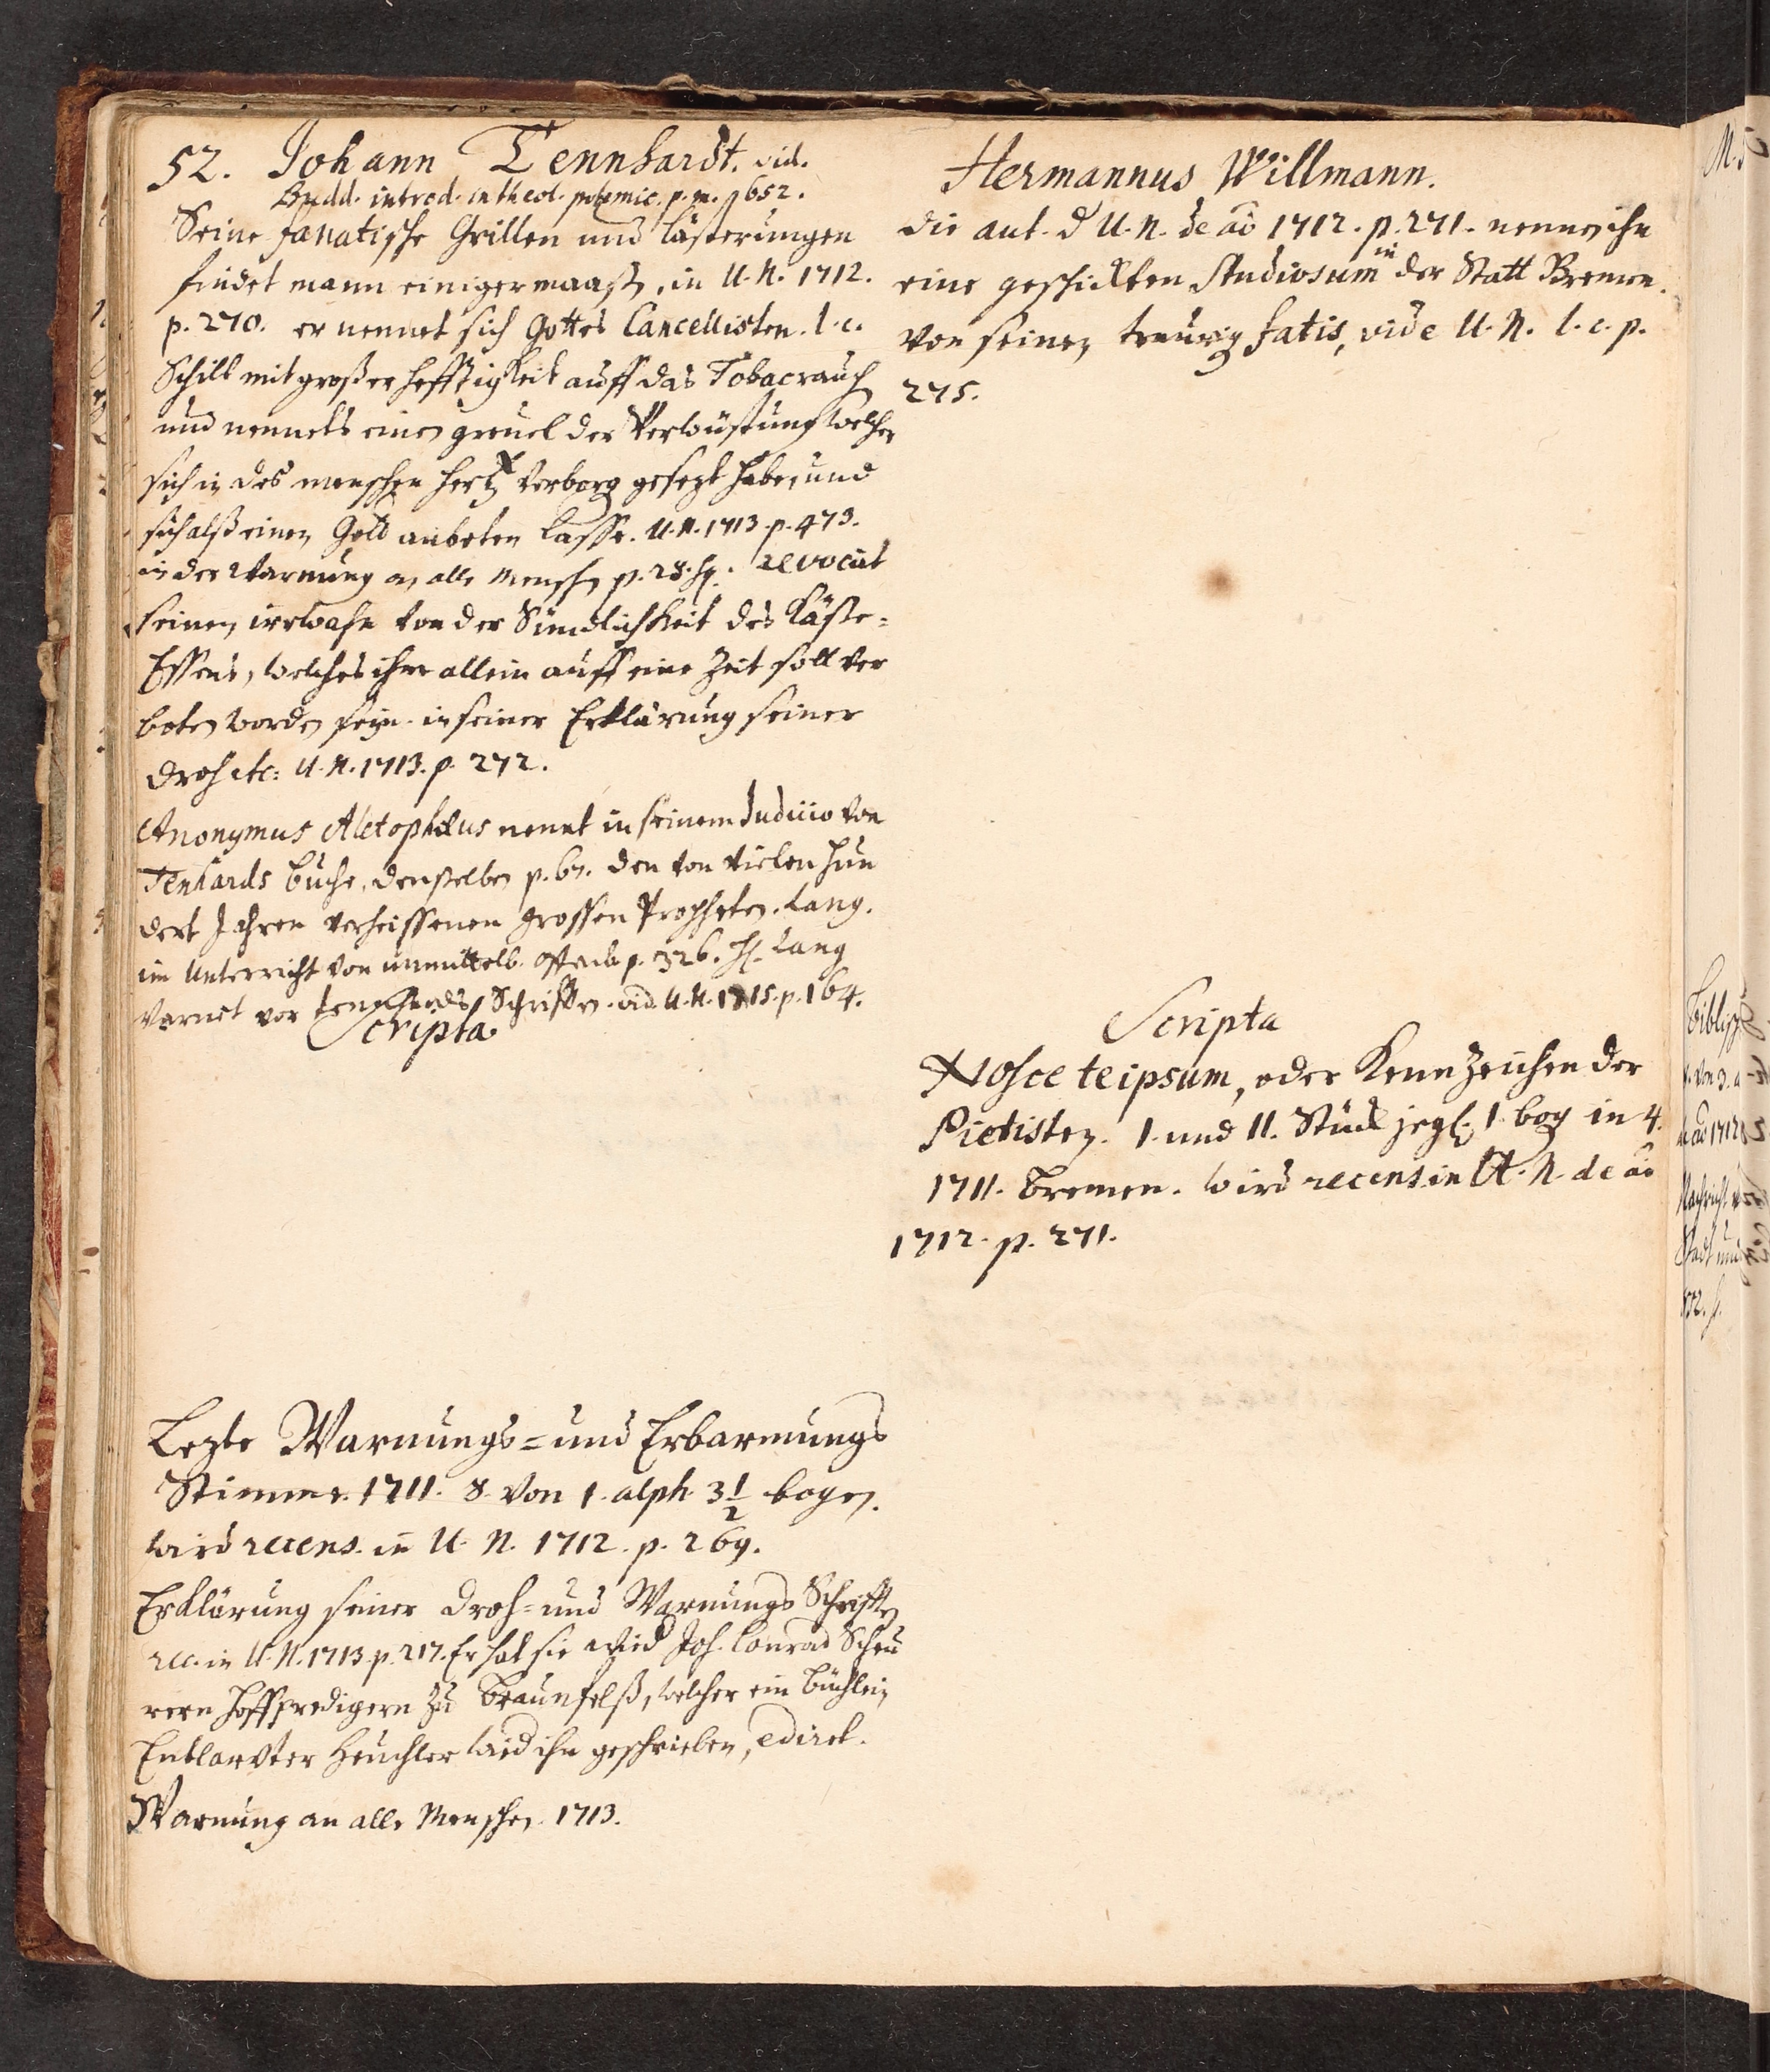 52. Johann Tennhardt. vid.
Budd. introd. in theol. polemic. p. m. 652.
Seine fanatische Grillen und Lästerungen
findet mann einiger maaß, in U. N. 1712.
p. 270. er nennet sich Gottes Cancellisten. l. c.
Schilt mit großer Hefftigkeit auff das Tobacrauch
und nennets einen greuel der Verwüstung welcher
sich in des menschen Hertz verborg gesezt habe, und
sich alß einen Gott anbeten lasse. U. N. 1713. p. 473.
in der Warnung an alle Mensch p. 28. sq. revocirt
seinen irrwahn von der Sündlichkeit des Käße=
Essens, welches ihm allein auff eine Zeit soll ver
boten worden seyn. in seiner Erklärung seiner
Droh etc: U. N. 1713. p. 272.
Anonymus Aletophilus nennt in seinem Judicio von
Tenhards Buche, denselben p. 67. den von vielen hun
dert Jahren verheissenen grossen Propheten. Lang.
im Unterricht von unmittelb. offenb. p. 326. H. Lang
warnet vor Tennhards Schrifften. vid. U. N. 1715. p. 164.
Scripta
Lezte Warnungs= und Erbarmungs
Stimme. 1711. 8. von 1. alph. 3 1/2 bogen.
wird recens. in U. N. 1712. p. 269.
Erklärung seiner Droh= und Warnungs Schrifften
rec. in U. N. 1713. p. 217. Er hat sie wied Joh. Conrad Scheu
rern Hoffpredigern zu Braunfelß, welcher ein Büchlein
Entlarvter Heuchler wied ihn geschrieben, edirt.
Warnung an alle Menschen. 1713.
Hermannus Willmann.
Die aut. d U. N. de ao 1712. p. 271. nennen ihn
eine geschickten Studiosum in der Statt Bremen.
Von seinen traurig fatis, vide U. N. l. c. p.
275.
Scripta
Nosce te ipsum, oder Kennzeichen der
Pietisten. I. und II. Stück jegl. 1. bog in 4.
1711. Bremen. wird recens. in U. N. de ao
1712. p. 271.